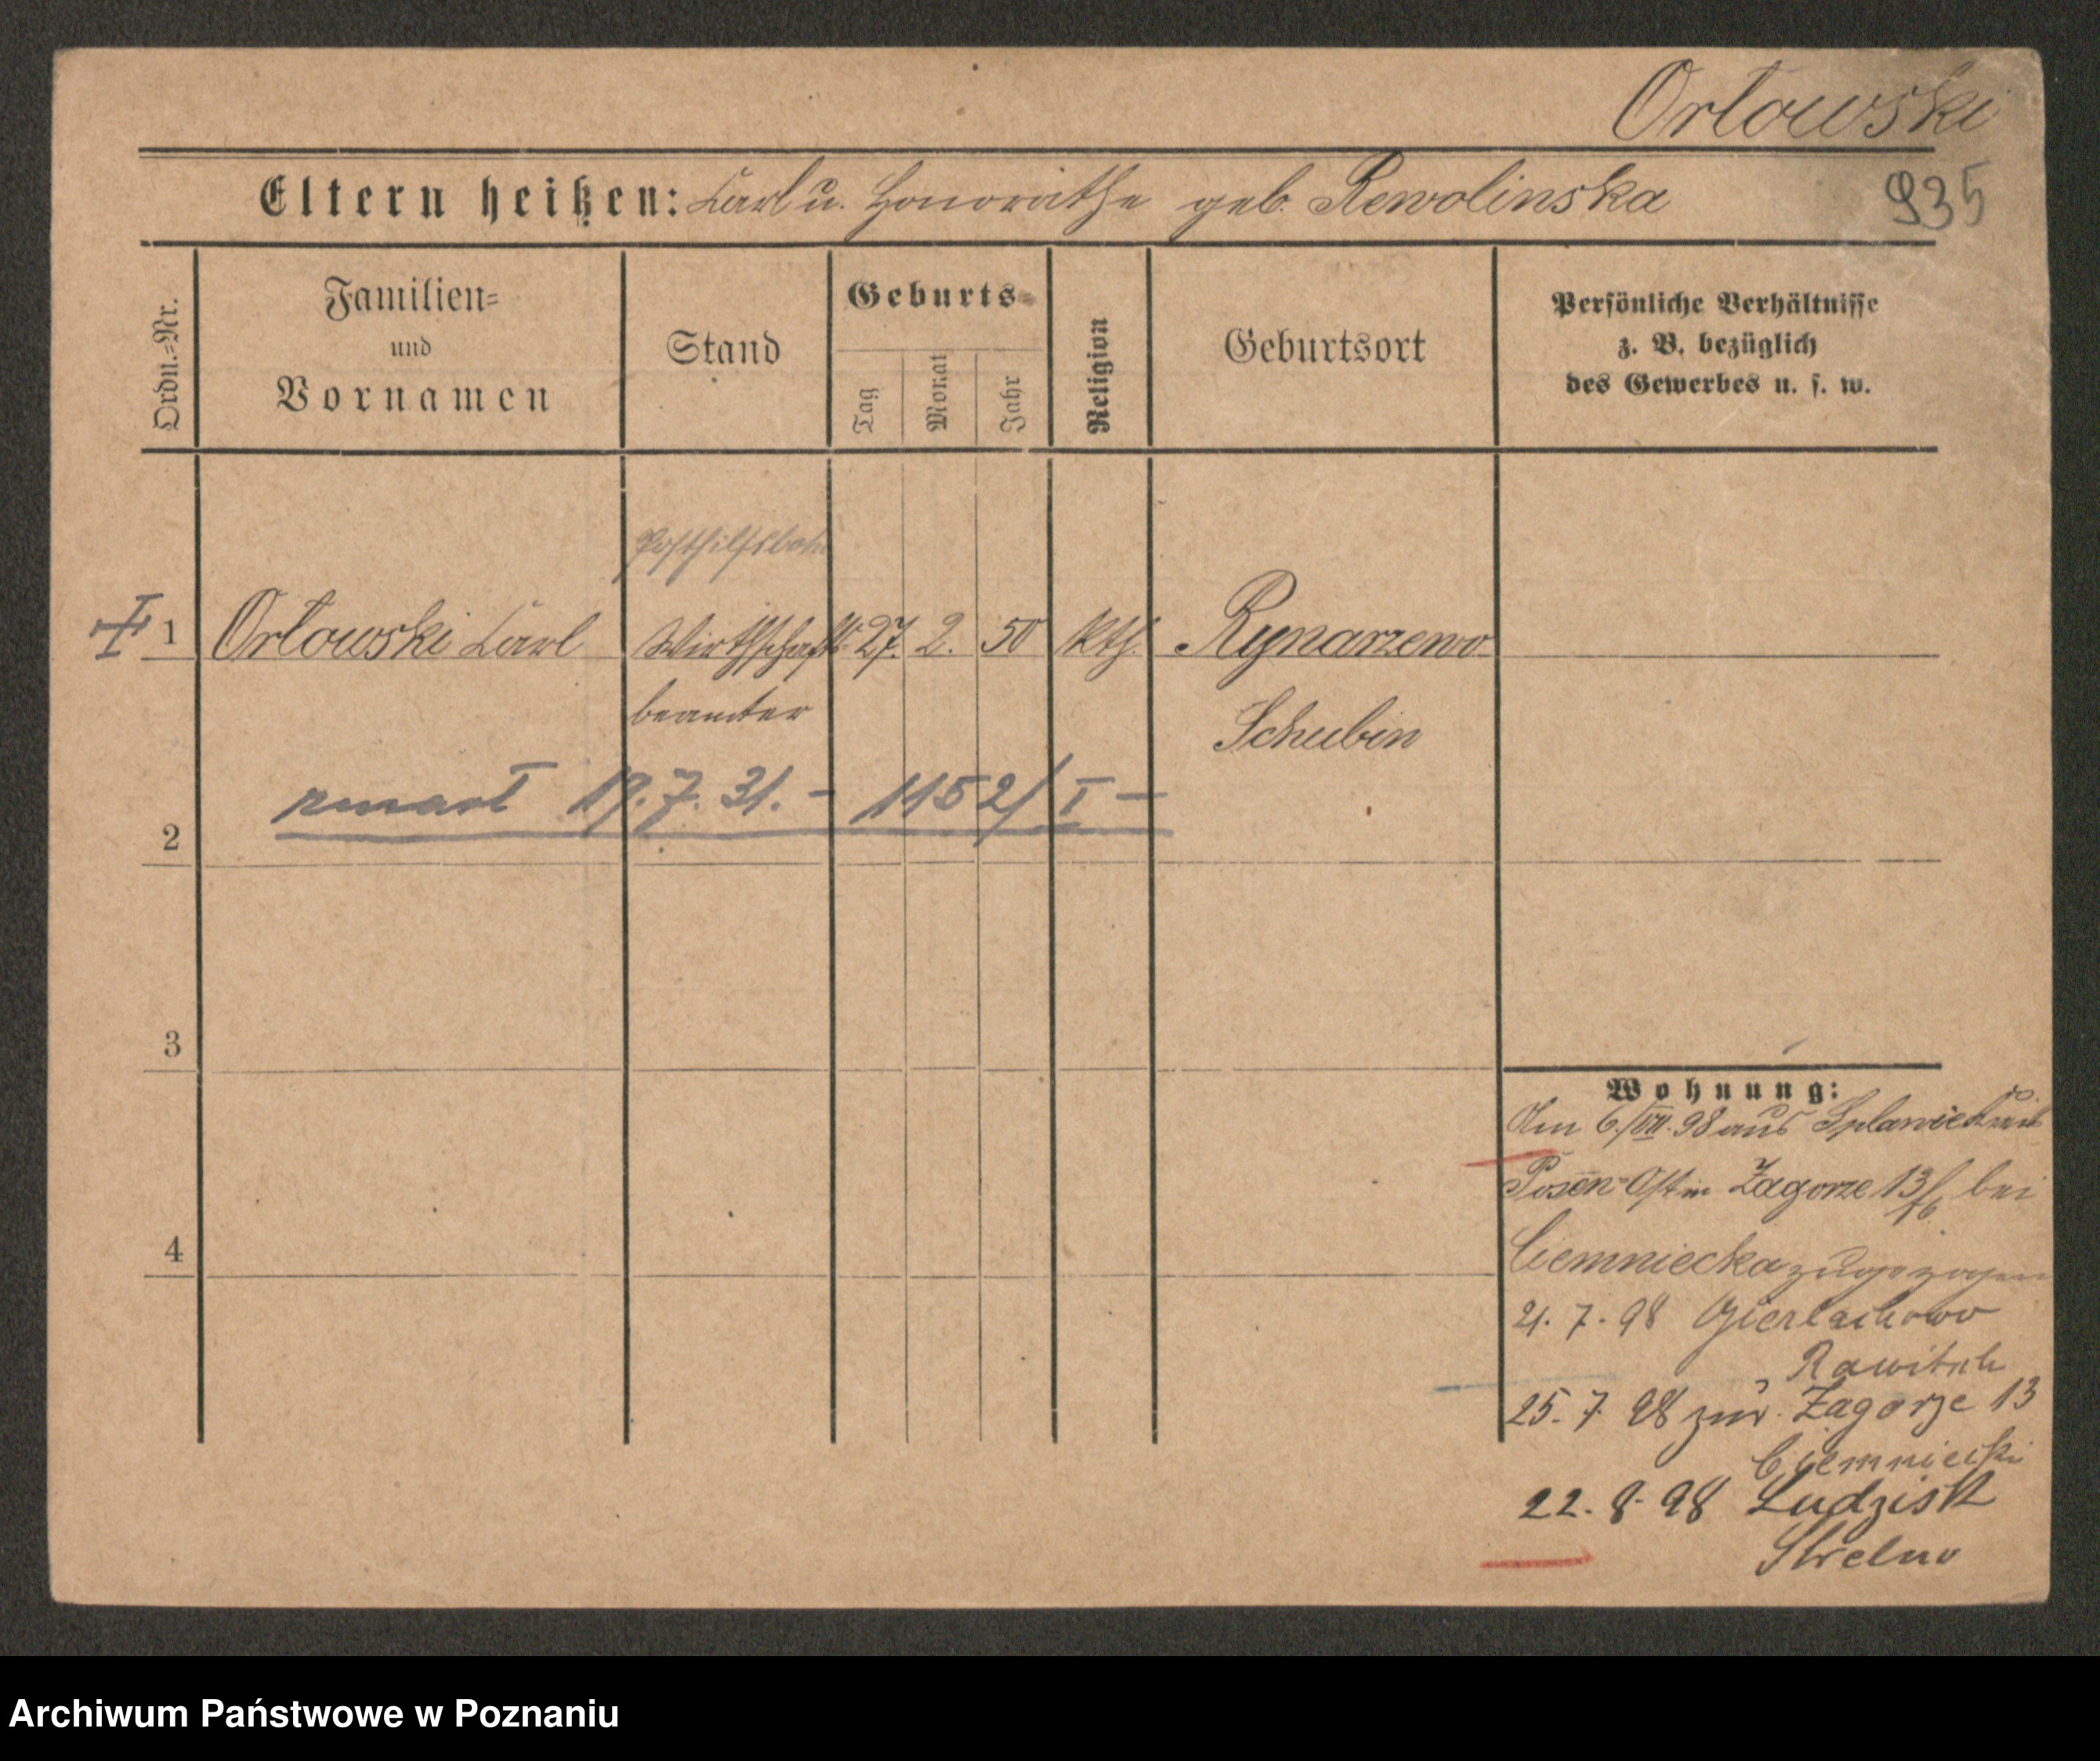 Orlowski
Eltern heißen: Carl u. Honorathe geb. Rewolinska
935
Ordn.=Nr.
Familien=
und
Vornamen
Stand
Geburts=
Tag
Monat
Jahr
Religion
Geburtsort
Persönliche Verhältnisse
z. B. bezüglich
des Gewerbes u. s. w.
Posthilfsbote
1 Orlowski Carl Wirthschafts 27. 2. 50 kth. Rynarzewo
beamter
Schubin
zmarł 19.7.31. – 1152/I –
2
3
4
Wohnung:
Am 6./VII. 98 aus Splawie
Posen-Ost in Zagorze 13 bei
Ciemniecka zugezogen
21. 7. 98 Gierlachowo
Rawitsch
25. 7. 98 zur. Zagorze 13
Ciemniecki
22. 8. 98 Ludzisk
Strelno
Archiwum Państwowe w Poznaniu